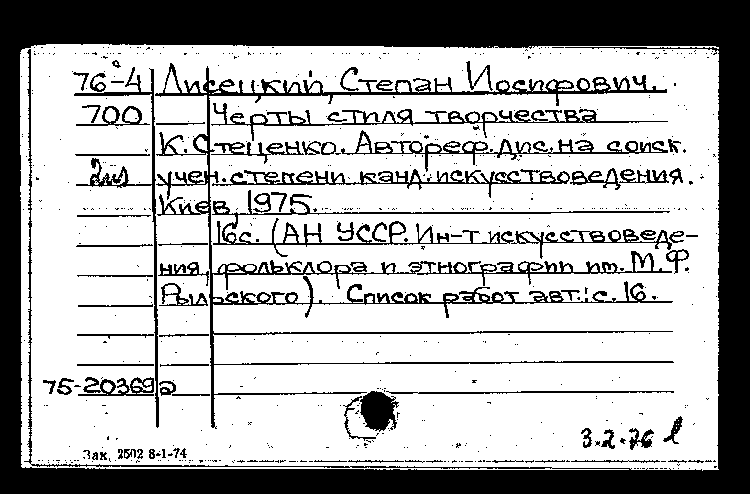 76-4 Лисецкий, Степан Иосифович.
700 Черты стиля творчества
К. Стеценко. Автореф. дис. на соиск.
учен. степени канд. искусствоведения.
Киев, 1975.
16с. (АН УССР. Ин-т искусствоведе-
ния, фольклора и этнографии им. М.Ф.
Рыльского). Список работ авт.: с. 16.
75-20369а
3.2.76
Зак. 2502 8-1-74